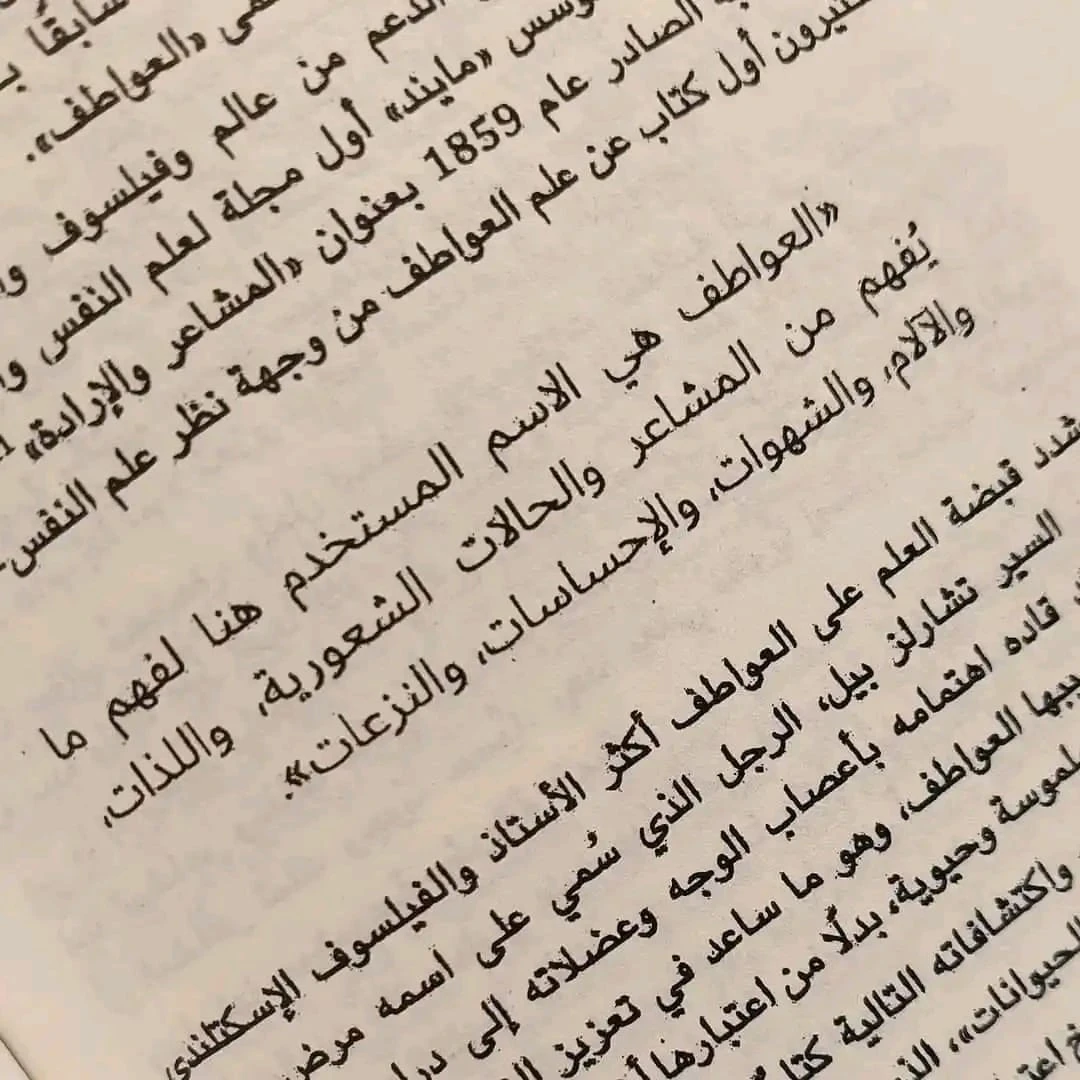 سابقًا
«العواطف».
الدعم من عالم وفيلسوف
«مايند» أول مجلة لعلم النفس
الصادر عام 1859 بعنوان «المشاعر والإرادة»
أول كتاب عن علم العواطف من وجهة نظر علم النفس
«العواطف هي الاسم المستخدم هنا لفهم ما
يُفهم من المشاعر والحالات الشعورية، واللذات،
والآلام، والشهوات، والإحساسات، والنزعات».
قبضة العلم على العواطف أكثر الأستاذ والفيلسوف الإسكتلندي
السير تشارلز بيل، الرجل الذي سُمي على اسمه مرض
قاده اهتمامه بأعصاب الوجه وعضلاته إلى
العواطف، وهو ما ساعد في تعزيز
وحيوية، بدلًا من اعتبارها
واكتشافاته التالية
الحيوانات»،